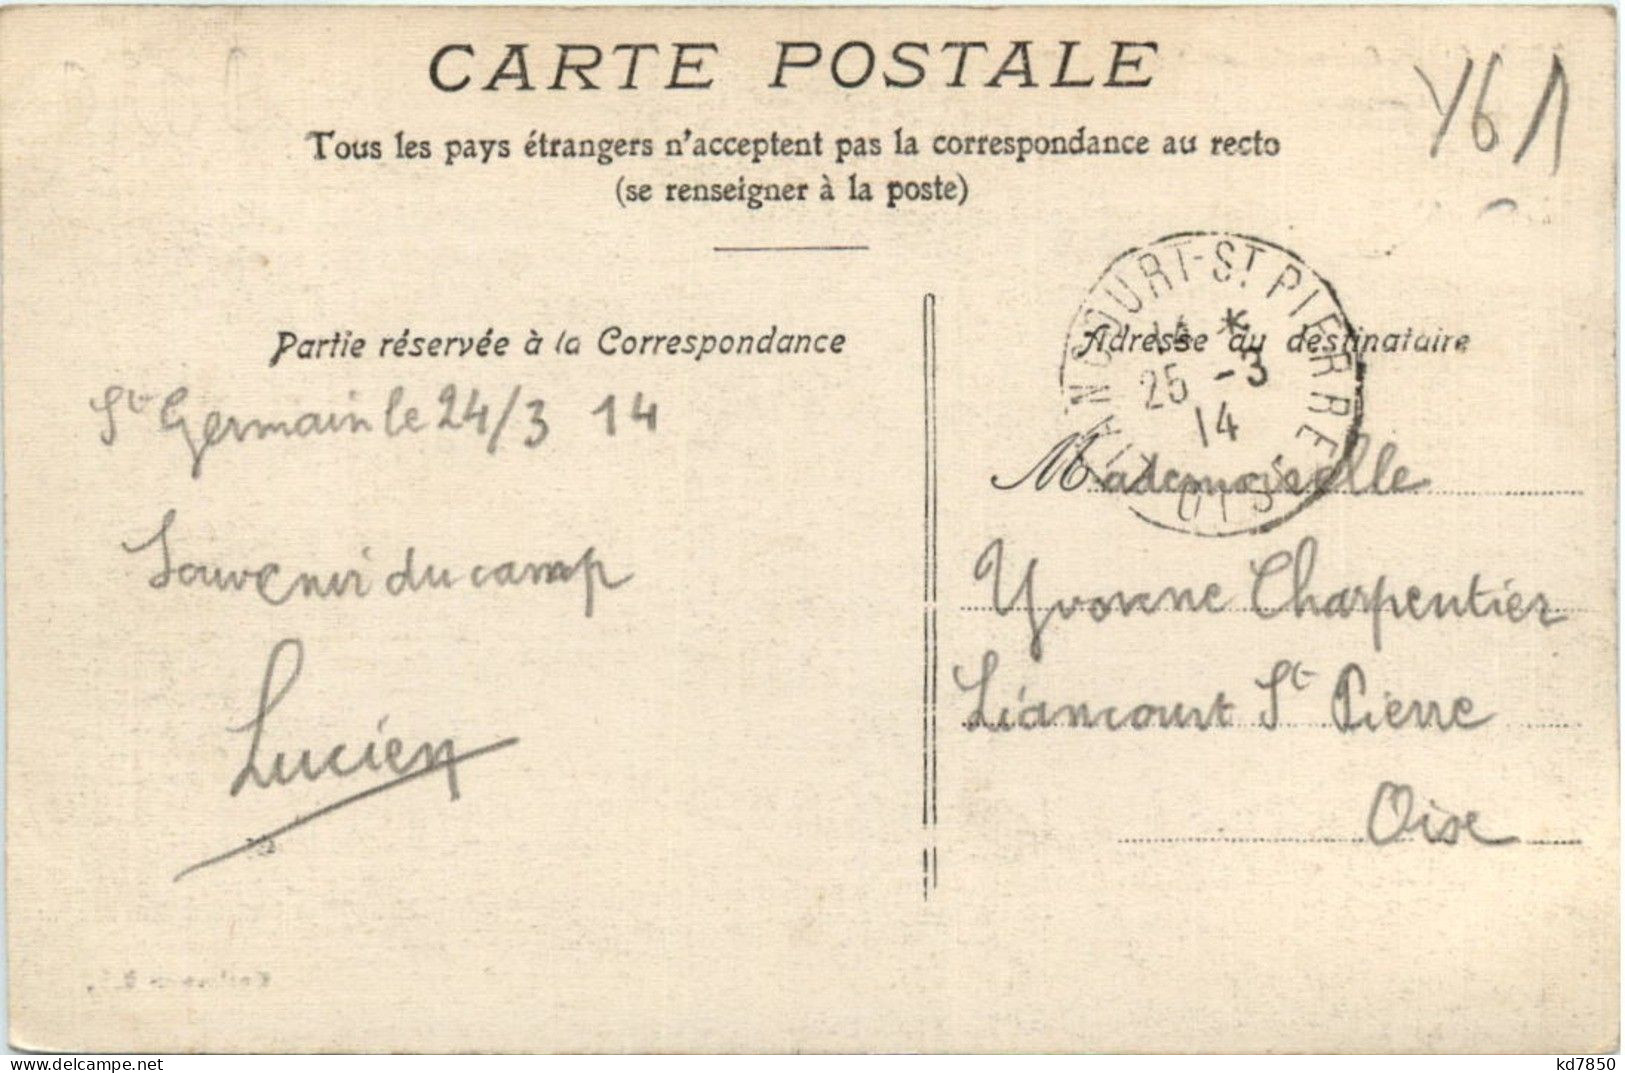 CARTE POSTALE
Tous les pays étrangers n'acceptent pas la correspondance au recto
(se renseigner à la poste)
Y61
Partie réservée à la Correspondance
St Germain le 24/3 14
Souvenir du camp
Lucien
Adresse du destinataire
LIANCOURT-ST PIERRE
14 *
25 -3
14
OISE
Mademoiselle
Yvonne Charpentier
Liancourt St Pierre
Oise
kd7850